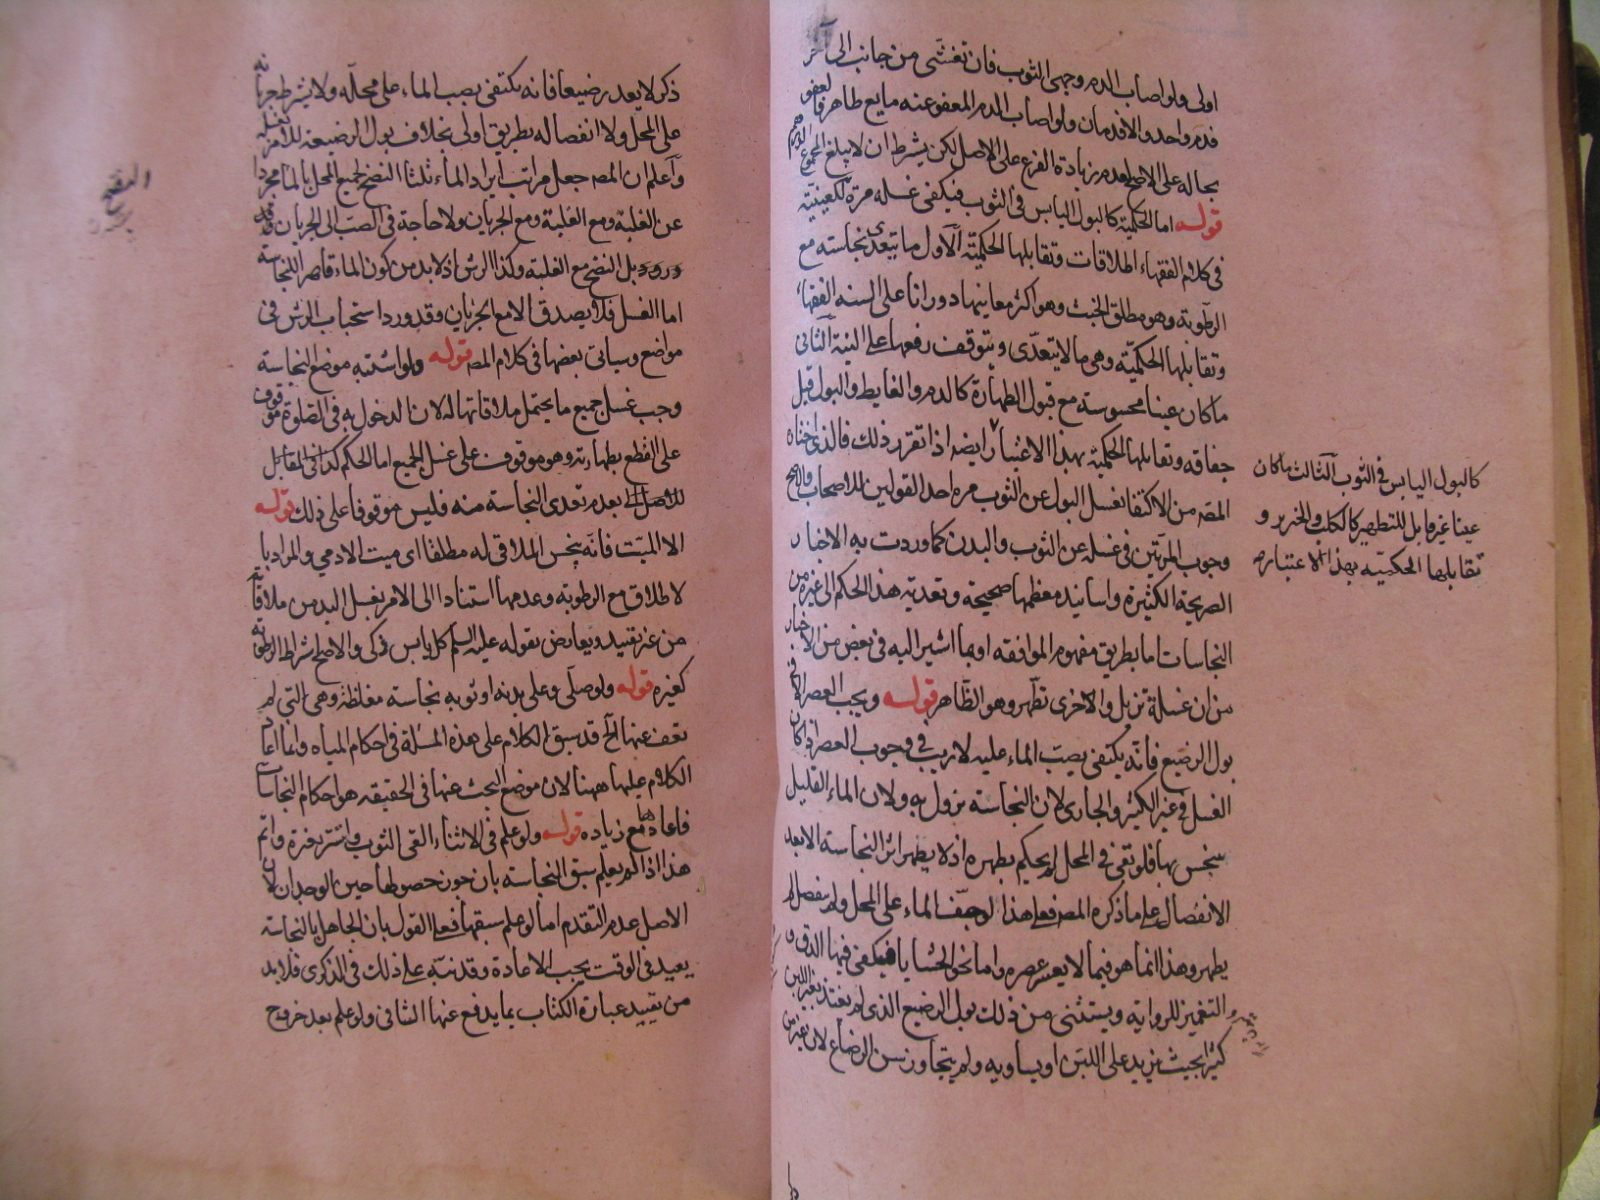 اولى ولو اصاب الدم وجهى الثوب فان تفشى من جانب الى آخر
فدم واحد والا فدمان ولو اصاب الدم المعفو عنه مايع طاهر فالعفو
بحاله على الاصح لعدم زيادة الفرع على الاصل لكن يشترط ان لا يبلغ المجموع الدرهم
قوله اما الحكمية كالبول اليابس فى الثوب فيكفى غسله مرة للعينية
فى كلام الفقهاء اطلاقات وتقابلها الحكمية الاول ما يتعدى نجاسته مع
الرطوبة وهو مطلق الخبث وهو اكثر معانيها دورانا على السنة الفقهاء
وتقابلها الحكمية وهى ما لا يتعدى ويتوقف رفعها على النية الثانى
ما كان عينا محسوسة مع قبول الطهارة كالدم والغايط والبول قبل
جفافه وتقابلها الحكمية بهذا الاعتبار ايضا اذا تقرر ذلك فالذى اختاره
المصه من الاكتفا بغسل البول عن الثوب مره احد القولين للاصحاب والاصح
وجوب المرتين فى غسله عن الثوب والبدن كما وردت به الاخبار
الصريحة الكثيرة واسانيد معظمها صحيحة وتعدية هذا الحكم الى غيره من
النجاسات اما بطريق مفهوم الموافقه او بما اشير اليه فى بعض من الاخبار
من ان غسلة تزيل والاخرى تطهر وهو الظاهر قوله ويجب العصر الا فى
بول الرضيع فانه يكتفى بصب الماء عليه لا ريب فى وجوب العصر اذا كان
الغسل فى غير الكثير والجارى لان النجاسة تزول به ولان الماء القليل
ينجس بها فلو بقى فى المحل لم يحكم بطهره اذ لا يطهر اثر النجاسة الا بعد
الانفصال على ما ذكره المصه فعلى هذا لو جف الماء على المحل ولم ينفصل لم
يطهر وهذا انما هو فيما لا يعسر عصره واما نحو الحشايا فيكفى فيها الدق و
التغميز للرواية ويستثنى من ذلك بول الرضيع الذى لم يغتذ بغير اللبن
كثيرا بحيث يزيد على اللبن او يساويه ولم يتجاوز سن الرضاع لان بغير من
كالبول اليابس فى الثوب الثالث ما كان
عينا غير قابل للتطهير كالكلب والخنزير و
تقابلها الحكمية بهذا الاعتبار
ذكر لا يعد رضيعا فانه يكتفى بصب الماء على محاله ولا يشترط جريانه
على المحل ولا انفصاله بطريق اولى بخلاف بول الرضيعة للامر بغسله
واعلم ان المصه جعل مراتب ايراد الماء ثلثا النضح لجميع المحل بالماء مجردا
عن الغلبة ومع الغلبة ومع الجريان ولا حاجة فى الصب الى الجريان
بل النضح مع الغلبة وكذا الرش اذ لا بد من كون الماء قاهرا للنجاسة
اما الغسل فلا يصدق الا مع الجريان وقد ورد استحباب الرش فى
مواضع وسياتى بعضها فى كلام المصه قوله ولو اشتبه موضع النجاسة
وجب غسل جميع ما يحتمل ملاقاتها له لان الدخول به فى الصلوة موقوف
على القطع بطهارته وهو موقوف على غسل الجميع اما الحكم
بعدم تعدى النجاسة منه فليس موقوفا على ذلك قوله
الا الميت فانه ينجس الملاقى له مطلقا اى ميت الادمى والمراد
لاطلاق مع الرطوبة وعدمها استنادا الى الامر بغسل اليد من ملاقاته
من غير تقييد ويعارض بقوله عليه السلم كل يابس ذكى والاصح اشتراط الرطوبة
كغيره قوله ولو صلى وعلى بدنه او ثوبه نجاسة مغلظة وهى التى لم
يعف عنها الخ قد سبق الكلام على هذه المسئلة فى احكام المياه وانما اعاد
الكلام عليها ههنا لان موضع البحث عنها فى الحقيقه هو احكام النجاسات
فاعادها مع زياده قوله ولو علم فى الاثناء القى الثوب واستتر بغيره واتم
هذا اذا لم يعلم سبق النجاسة بان جوز حصولها حين الوجدان لان
الاصل عدم التقدم اما لو علم سبقها فعلى القول بان الجاهل بالنجاسة
يعيد فى الوقت يجب الاعادة وقد نبه على ذلك فى الذكرى فلا بد
من تقييد عبارة الكتاب بما يدفع عنها الثانى ولو علم بعد خروج